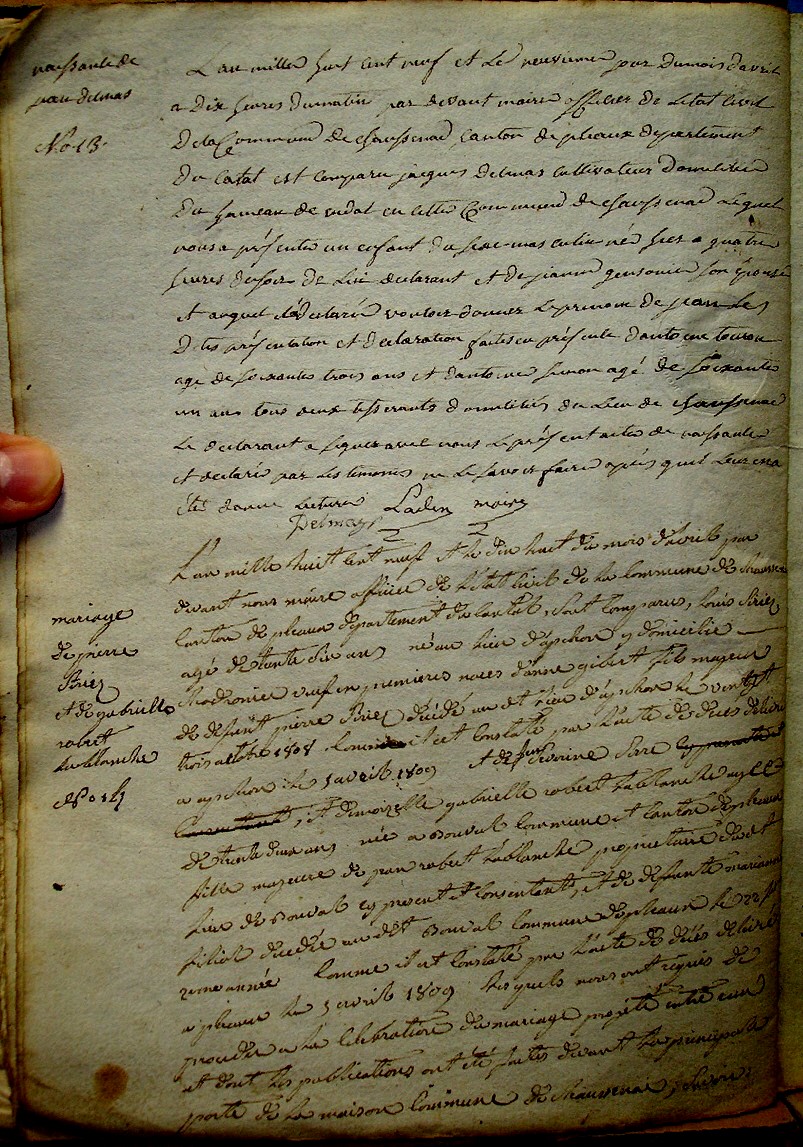 naissance de
jean delmas
No 13.
L'an mille huit cent neuf et Le neuvieme jour du mois d'avril
a Dix heures du matin par devant maire officier de l'état civil
De la Commune De chaussenac Canton de pleaux departement
Du Cantal est Comparu jacques Delmas Cultivateur Domicilié
Du hameau de en cette Commune de chaussenac Lequel
nous a présenté un enfant du sexe masculin né hier a quatre
heures du soir de Lui declarant et de jeanne son épouse
et auquel il a déclaré vouloir donner Le prenom de jean Les
Dites présentation et declaration faites en présence d'antoine
agé de soixante trois ans et d'antoine simon agé de soixante
un ans tous deux tisserants domiciliés du Lieu de chaussenac
Le declarant a signé avec nous Le présent acte de naissance
et déclaré par Les temoins ne Le savoir faire après qu'il Leur en a
été donné Lecture Laden maire
Delmas
mariage
de pierre
Briez
et de gabrielle
robert
Lablanche
No 14
L'an mille huit cent neuf et le dix huit du mois d'avril par
devant nous maire officier de l'état civil de la Commune de chaussenac
Canton de pleaux departement du Cantal, sont Comparus, Louis
agé de trente six ans né au lieu d'apchon y domicilié
veuf en premieres noces d'anne gibert fils majeur
de defunt pierre décédé au dit lieu d'apchon le vingt
trois octobre 1808 Comme il est Constaté par l'acte de deces delivré
a apchon le 5 avril 1809 et de
et demoizelle gabrielle robert lablanche agée
de trente deux ans née a Bouval Commune et Canton de pleaux
fille majeure de jean robert lablanche proprietaire du dit
lieu de Bouval cy present et Consentant, et de defunte marianne
filiol decedée au dit Bouval Commune de pleaux le 22
année Comme il est Constaté par l'acte de deces delivré
a pleaux le 5 avril 1809 lesquels nous ont requis de
proceder a la celebration du mariage projeté entre eux
et dont les publications ont été faites devant la principale
porte de la maison Commune de chaussenac,